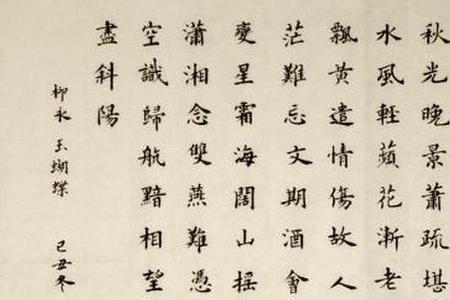 秋光晚景蕭疏堪
水風輕蘋花漸老
飄黃遣情傷故人
茫難忘文期酒會
變星霜海闊山搖
瀟湘念雙燕難憑
空識歸航黯相望
盡斜陽
柳永 玉蝴蝶 己丑冬